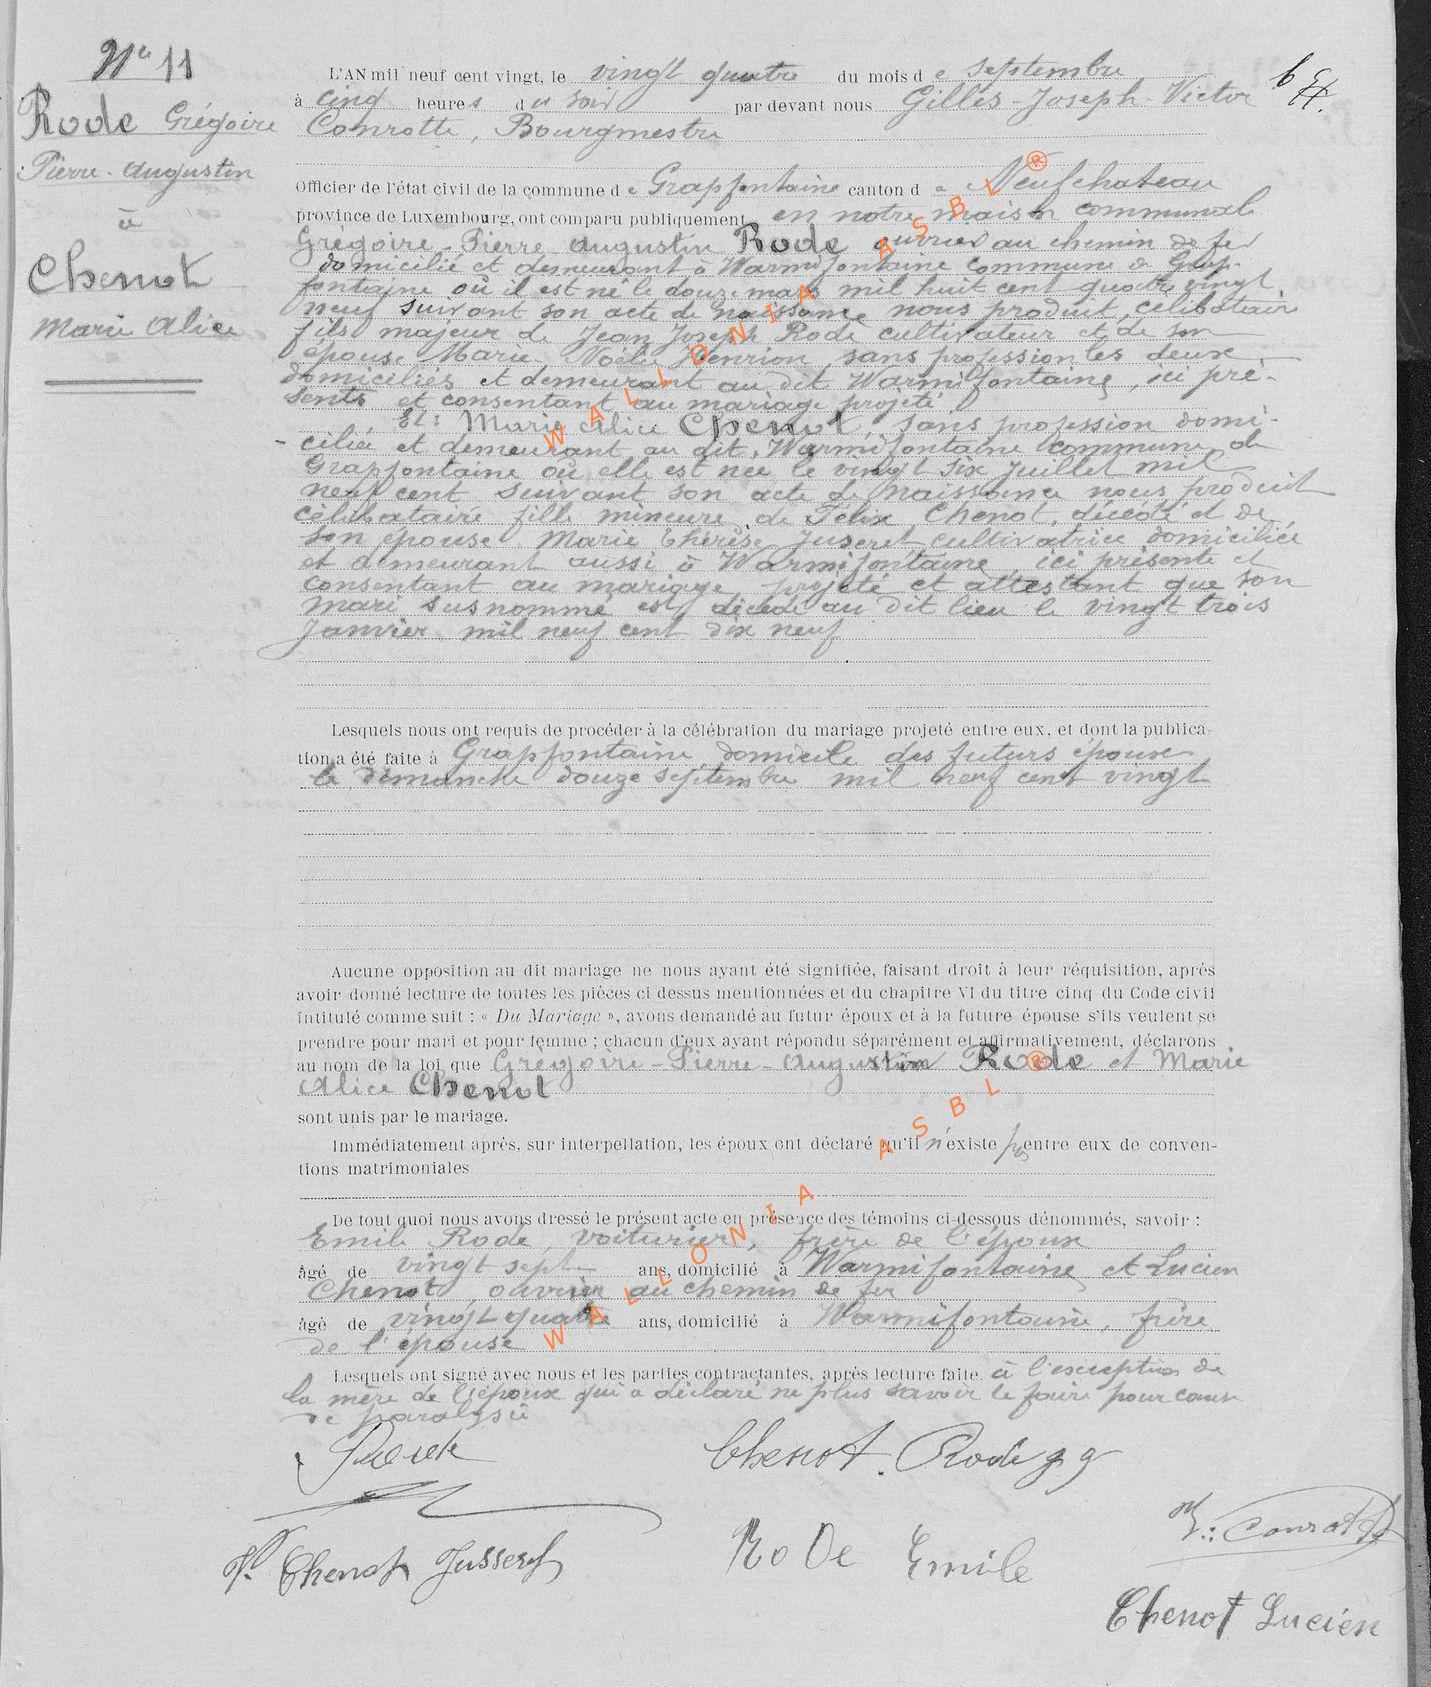 N° 11
Rode Grégoire
Pierre-Augustin
à
Chenot
Marie Alice
L'AN mil neuf cent vingt, le vingt quatre du mois de septembre
à cinq heures du soir par devant nous Gilles-Joseph-Victor
Conrotte, Bourgmestre
Officier de l'état civil de la commune de Grapfontaine canton de Neufchateau
province de Luxembourg, ont comparu publiquement en notre maison communale
Grégoire-Pierre Augustin Rode ouvrier au chemin de fer
domicilié et demeurant à Warmifontaine commune de Grap-
fontaine où il est né le douze mars mil huit cent quatre vingt
neuf suivant son acte de naissance nous produit, célibataire
fils majeur de Jean Joseph Rode cultivateur et de son
épouse Marie Noëlie Henrion, sans profession les deux
domiciliés et demeurant au dit Warmifontaine, ici pré-
sents et consentant au mariage projeté
Et: Marie Alice Chenot, sans profession domi-
ciliée et demeurant au dit, Warmifontaine commune de
Grapfontaine où elle est née le vingt six juillet mil
neuf cent suivant son acte de naissance nous produit
célibataire fille mineure de Félix Chenot, décédé et de
son épouse Marie Thérèse Juseret cultivatrice domiciliée
et demeurant aussi à Warmifontaine, ici présente et
consentant au mariage projeté et attestant que son
mari susnommé est décédé au dit lieu le vingt trois
Janvier mil neuf cent dix neuf
Lesquels nous ont requis de procéder à la célébration du mariage projeté entre eux, et dont la publica-
tion a été faite à Grapfontaine domicile des futurs époux
le dimanche douze septembre mil neuf cent vingt
Aucune opposition au dit mariage ne nous ayant été signifiée, faisant droit à leur réquisition, après
avoir donné lecture de toutes les pièces ci dessus mentionnées et du chapitre VI du titre cinq du Code civil
intitulé comme suit : « Du Mariage », avons demandé au futur époux et à la future épouse s'ils veulent se
prendre pour mari et pour femme ; chacun d'eux ayant répondu séparément et affirmativement, déclarons
au nom de la loi que Grégoire-Pierre-Augustin Rode et Marie
Alice Chenot
sont unis par le mariage.
Immédiatement après, sur interpellation, les époux ont déclaré qu'il n'existe pas entre eux de conven-
tions matrimoniales
De tout quoi nous avons dressé le présent acte en présence des témoins ci-dessous dénommés, savoir :
Emile Rode, voiturier, frère de l'époux
âgé de vingt sept ans, domicilié à Warmifontaine et Lucien
Chenot, ouvrier au chemin de fer
âgé de vingt quatre ans, domicilié à Warmifontaine, frère
de l'épouse
Lesquels ont signé avec nous et les parties contractantes, après lecture faite, à l'exception de
la mère de l'époux qui a déclaré ne plus savoir le faire pour cause
de paralysie
Chenot. Rode
Chenot Jusseret
Rode Emile
Conrotte
Chenot Lucien
WALLONIA ASBL ®
WALLONIA ASBL ®